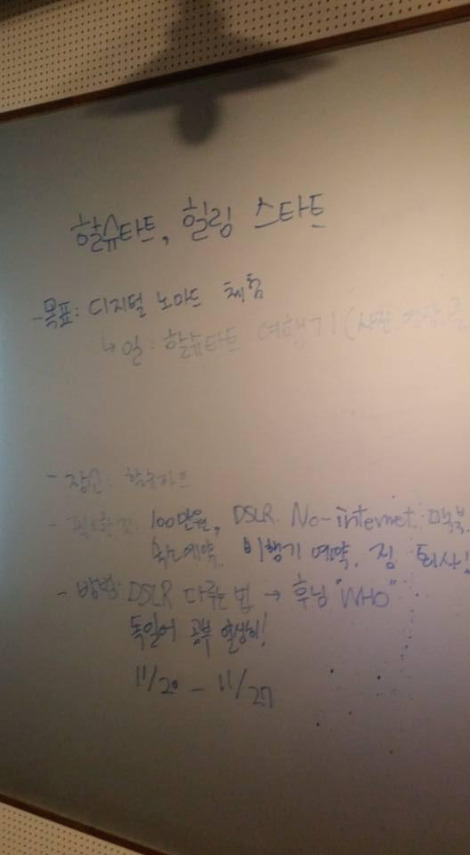 할슈타트, 힐링 스타트
- 목표: 디지털 노마드 체험
↳ 일: 할슈타트 여행기 (사진, 영상,
- 장소: 할슈타트
- 100만원, DSLR. No-internet,
숙소예약, 비행기 예약, 짐
- 방법: DSLR 다루는 법 → 후닝 "WHO"
독일어 공부 열심히!
11/20 - 11/27